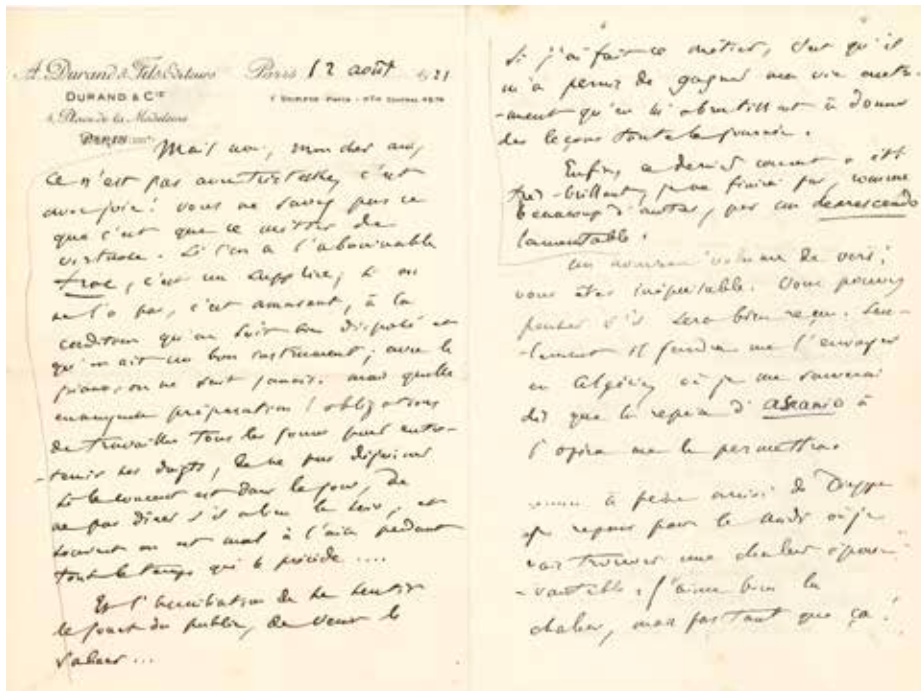 A. Durand & Fils Editeurs
DURAND & Cie
4, Place de la Madeleine
PARIS
Paris 12 août 1921
Mais non, mon cher ami,
ce n'est pas avec tristesse, c'est
avec joie! vous ne savez pas ce
que c'est que ce métier de
virtuose. Si l'on a l'abominable
trac, c'est un supplice; si on
ne l'a pas, c'est amusant, à la
condition qu'on soit bien disposé et
qu'on ait un bon instrument; avec le
piano, on ne sait jamais. mais quelle
ennuyeuse préparation! obligations
de travailler tous les jours pour entre-
-tenir ses doigts, de ne pas déjeuner
si le concert est dans le jour, de
ne pas dîner s'il a lieu le soir, et
souvent on est mal à l'aise pendant
tout le temps qui le précède ....
Et l'humiliation de se sentir
le jouet du public, de venir le
saluer ...
Si j'ai fait ce métier, c'est qu'il
m'a permis de gagner ma vie autre-
-ment qu'en m'abrutissant à donner
des leçons toute la journée.
Enfin, ce dernier concert a été
très-brillant, je ne finirai pas, comme
beaucoup d'autres, par un decrescendo
lamentable.
un nouveau volume de vers!
vous êtes inépuisable. Vous pouvez
penser s'il sera bien reçu. Seu-
-lement il faudra me l'envoyer
en Algérie, où je me sauverai
dès que la reprise d'Ascanio à
l'opéra me le permettra.
à peine arrivé de Dieppe
je repars pour le midi où je
vais trouver une chaleur épou-
-vantable. J'aime bien la
chaleur, mais pas tant que ça!